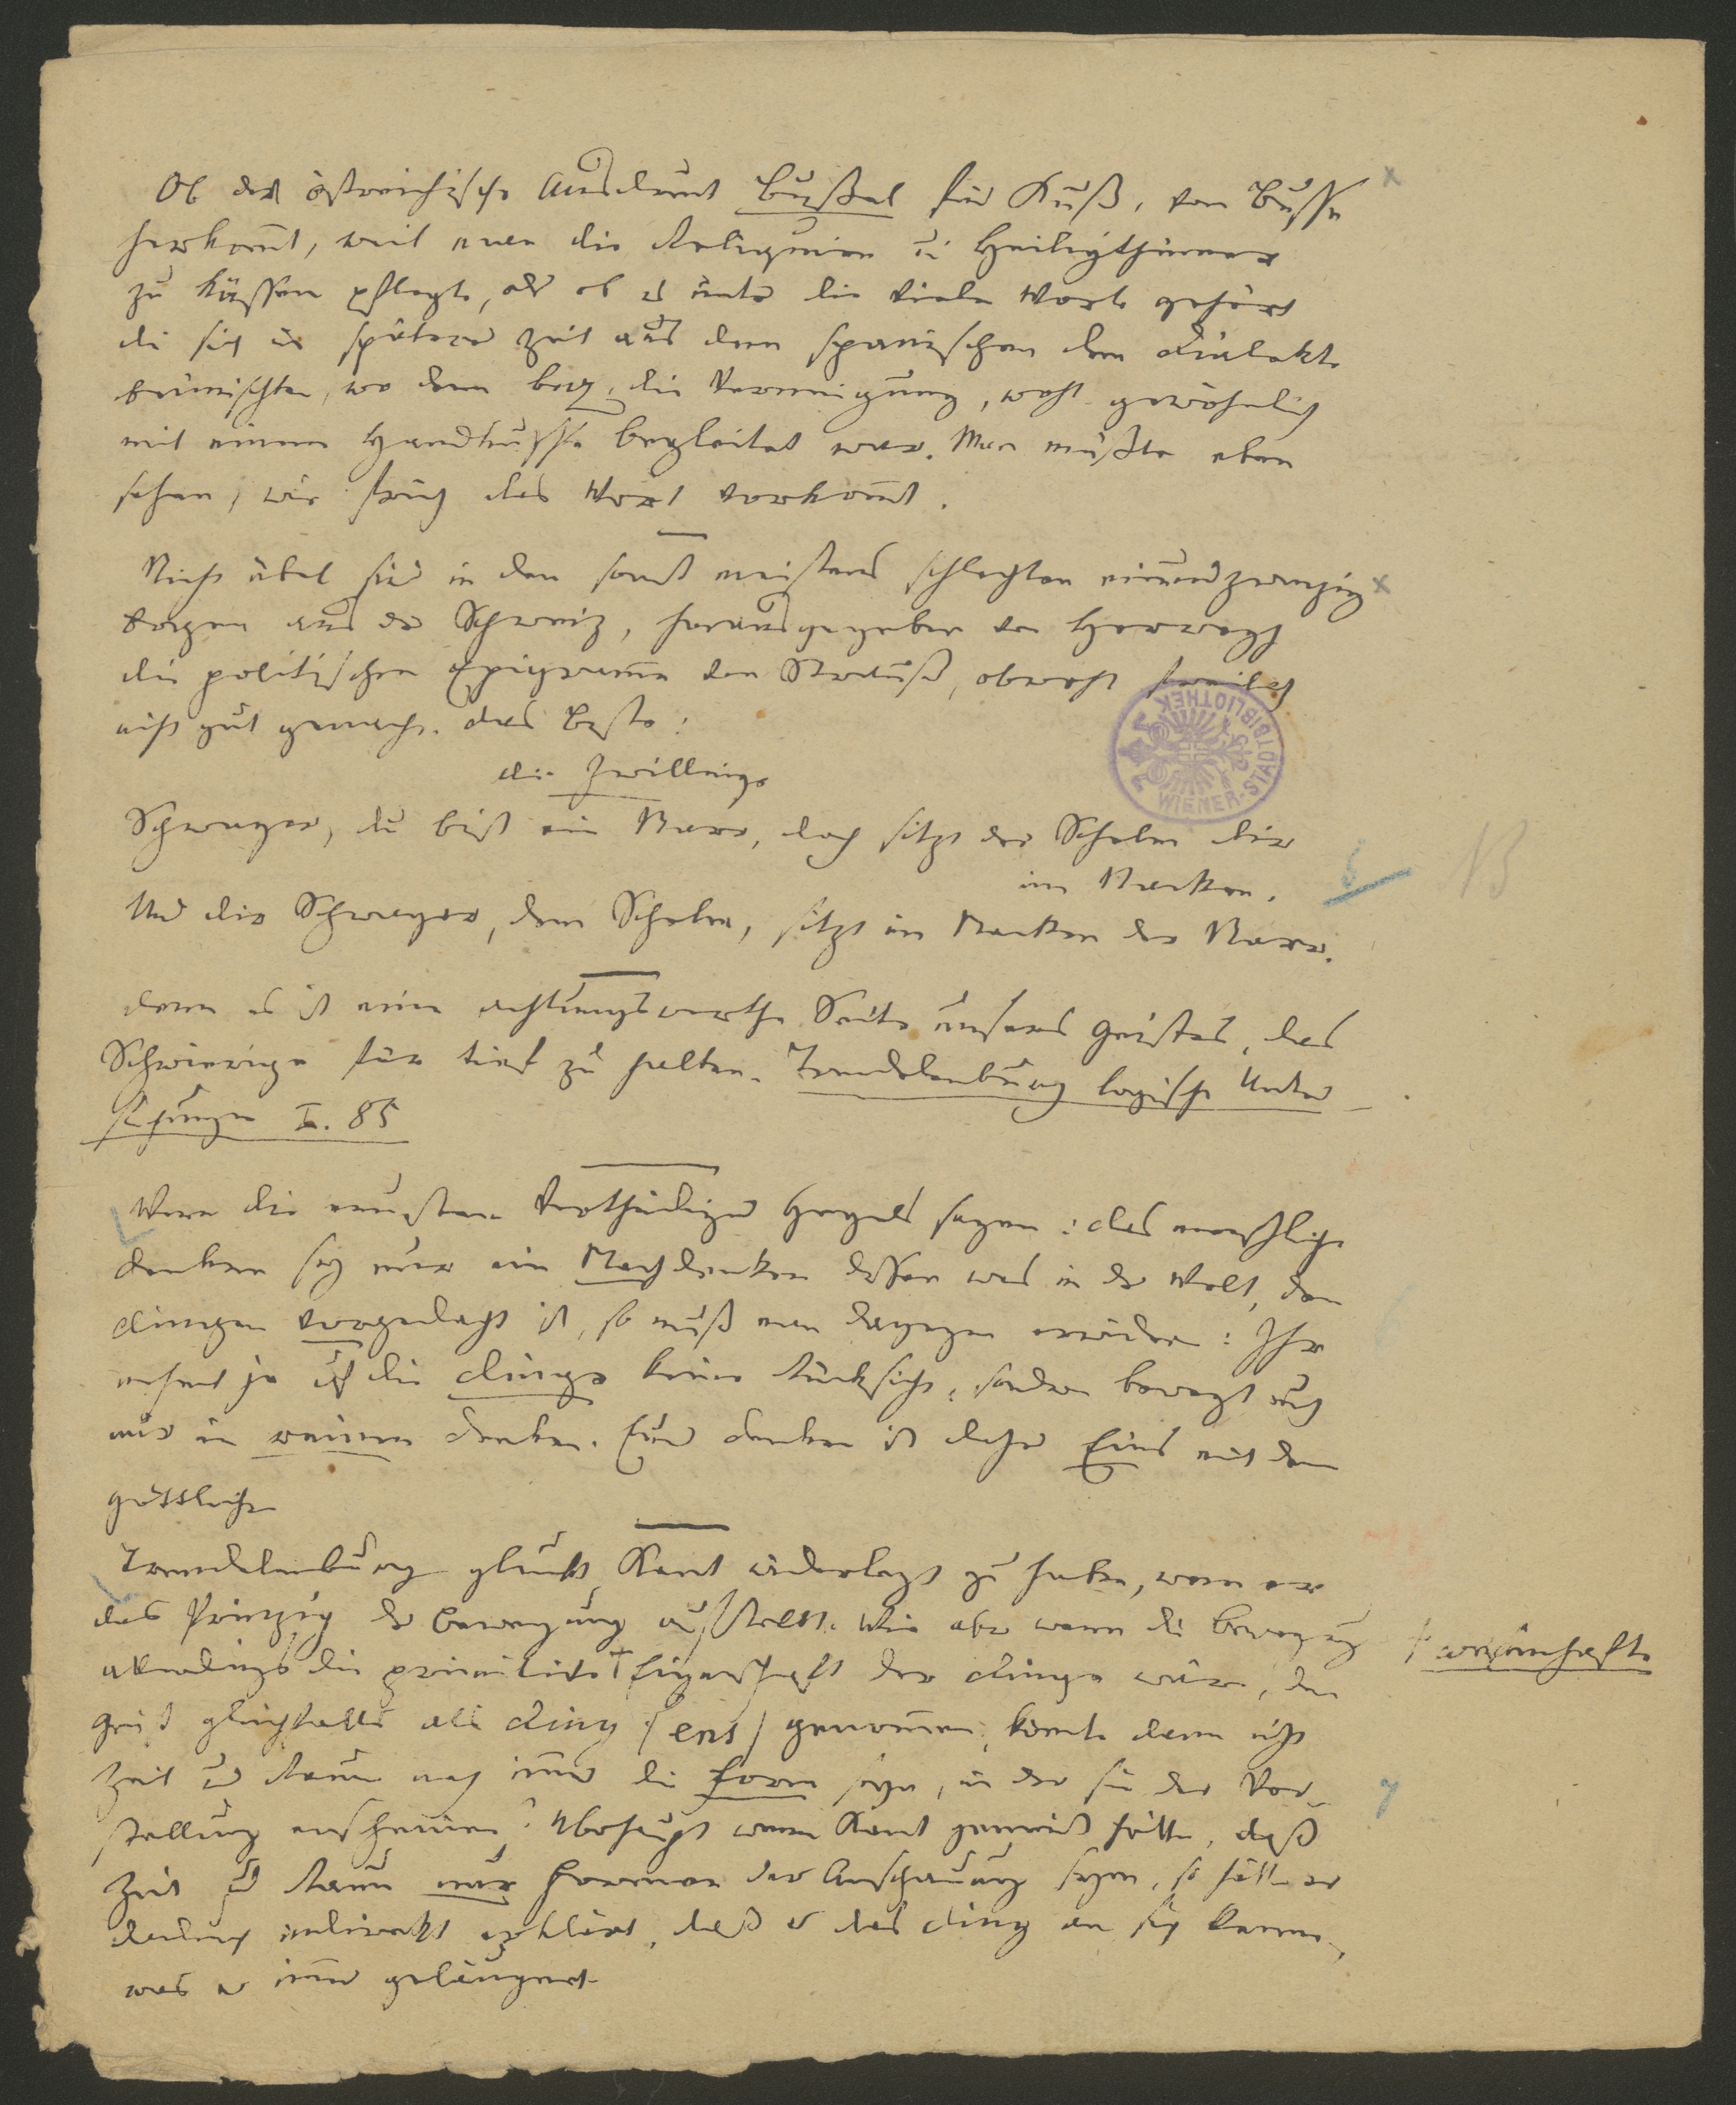 Ob der östreichische Ausdruck Bußel für Kuß, von Busse
herkom̄t, weil man die Reliquien u. Heiligthümer
zu küssen pflegte, oder ob es unter die vielen Worte gehört
die sich in späterer Zeit aus dem spanischen dem Dialekte
beimischten, wo denn die Verneigung, wohl gewöhnlich
mit einem Handkusse begleitet war. Man müßte eben
sehen, wie früh das Wort vorkom̄t.
Nicht übel sind in den sonst meistens schlechten einundzwanzig
Bogen aus der Schweiz, herausgegeben von Herwegh
die politischen Epigram̄e von Strauß, obwohl freilich
nicht gut gemacht. Das Beste:
die Zwillinge
Schwager, du bist ein Narr, doch sitzt der Schelm dir
im Nacken.
Und dir Schwager, dem Schelm, sitzt im Nacken der Narr.
Denn es ist eine achtungswerthe Seite unseres Geistes, das
Schwierige für tief zu halten. Trendelenburg logische Unter
suchungen I. 85
Wenn die neusten Vertheidiger Hegels sagen: das menschliche
Denken sey nur ein Nachdenken dessen was in der Welt, den
Dingen vorgedacht ist, so muß man dagegen erwidern: Ihr
nehmt ja auf die Dinge keine Rücksicht, sondern bewegt euch
nur im reinen Denken. Euer Denken ist daher Eins mit dem
göttlichen
Trendelenburg glaubt Kant widerlegt zu haben, wenn er
das Prinzip der Bewegung aufstellt. Wie aber wenn die Bewegung
allerdings die primitive † Eigenschaft der Dinge wäre, den
† wesenhafte
Geist gleichfalls als Ding (ens) genom̄en, könnte denn nicht
Zeit und Raum noch im̄er die Form seyn, in der sie der Vor-
stellung erscheinen? Überhaupt wenn Kant gemeint hätte, daß
Zeit und Raum nur Formen der Anschauung seyen, so hätte er
dadurch indirekt erklärt, daß er das Ding an sich kenne,
was er im̄er geläugnet.
WIENER-STADTBIBLIOTHEK
13